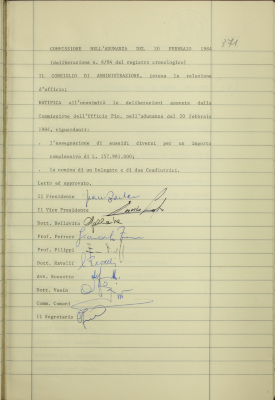 371
COMMISSIONE NELL'ADUNANZA DEL 20 FEBBRAIO 1984
(deliberazione n. 6/84 del registro cronologico)
IL CONSIGLIO DI AMMINISTRAZIONE, intesa la relazione
d'ufficio;
RATIFICA all'unanimità le deliberazioni assunte dalla
Commissione dell'Ufficio Pio, nell'adunanza del 20 febbraio
1984, riguardanti:
. l'assegnazione di sussidi diversi per un importo
complessivo di L. 157.981.000;
. la nomina di un Delegato e di due Coadiutrici.
Letto ed approvato.
Il Presidente
Il Vice Presidente
Dott. Bellavita
Prof. Ferrero
Prof. Filippi
Dott. Ravelli
Avv. Rossotto
Dott. Vasta
Comm. Comoni
Il Segretario